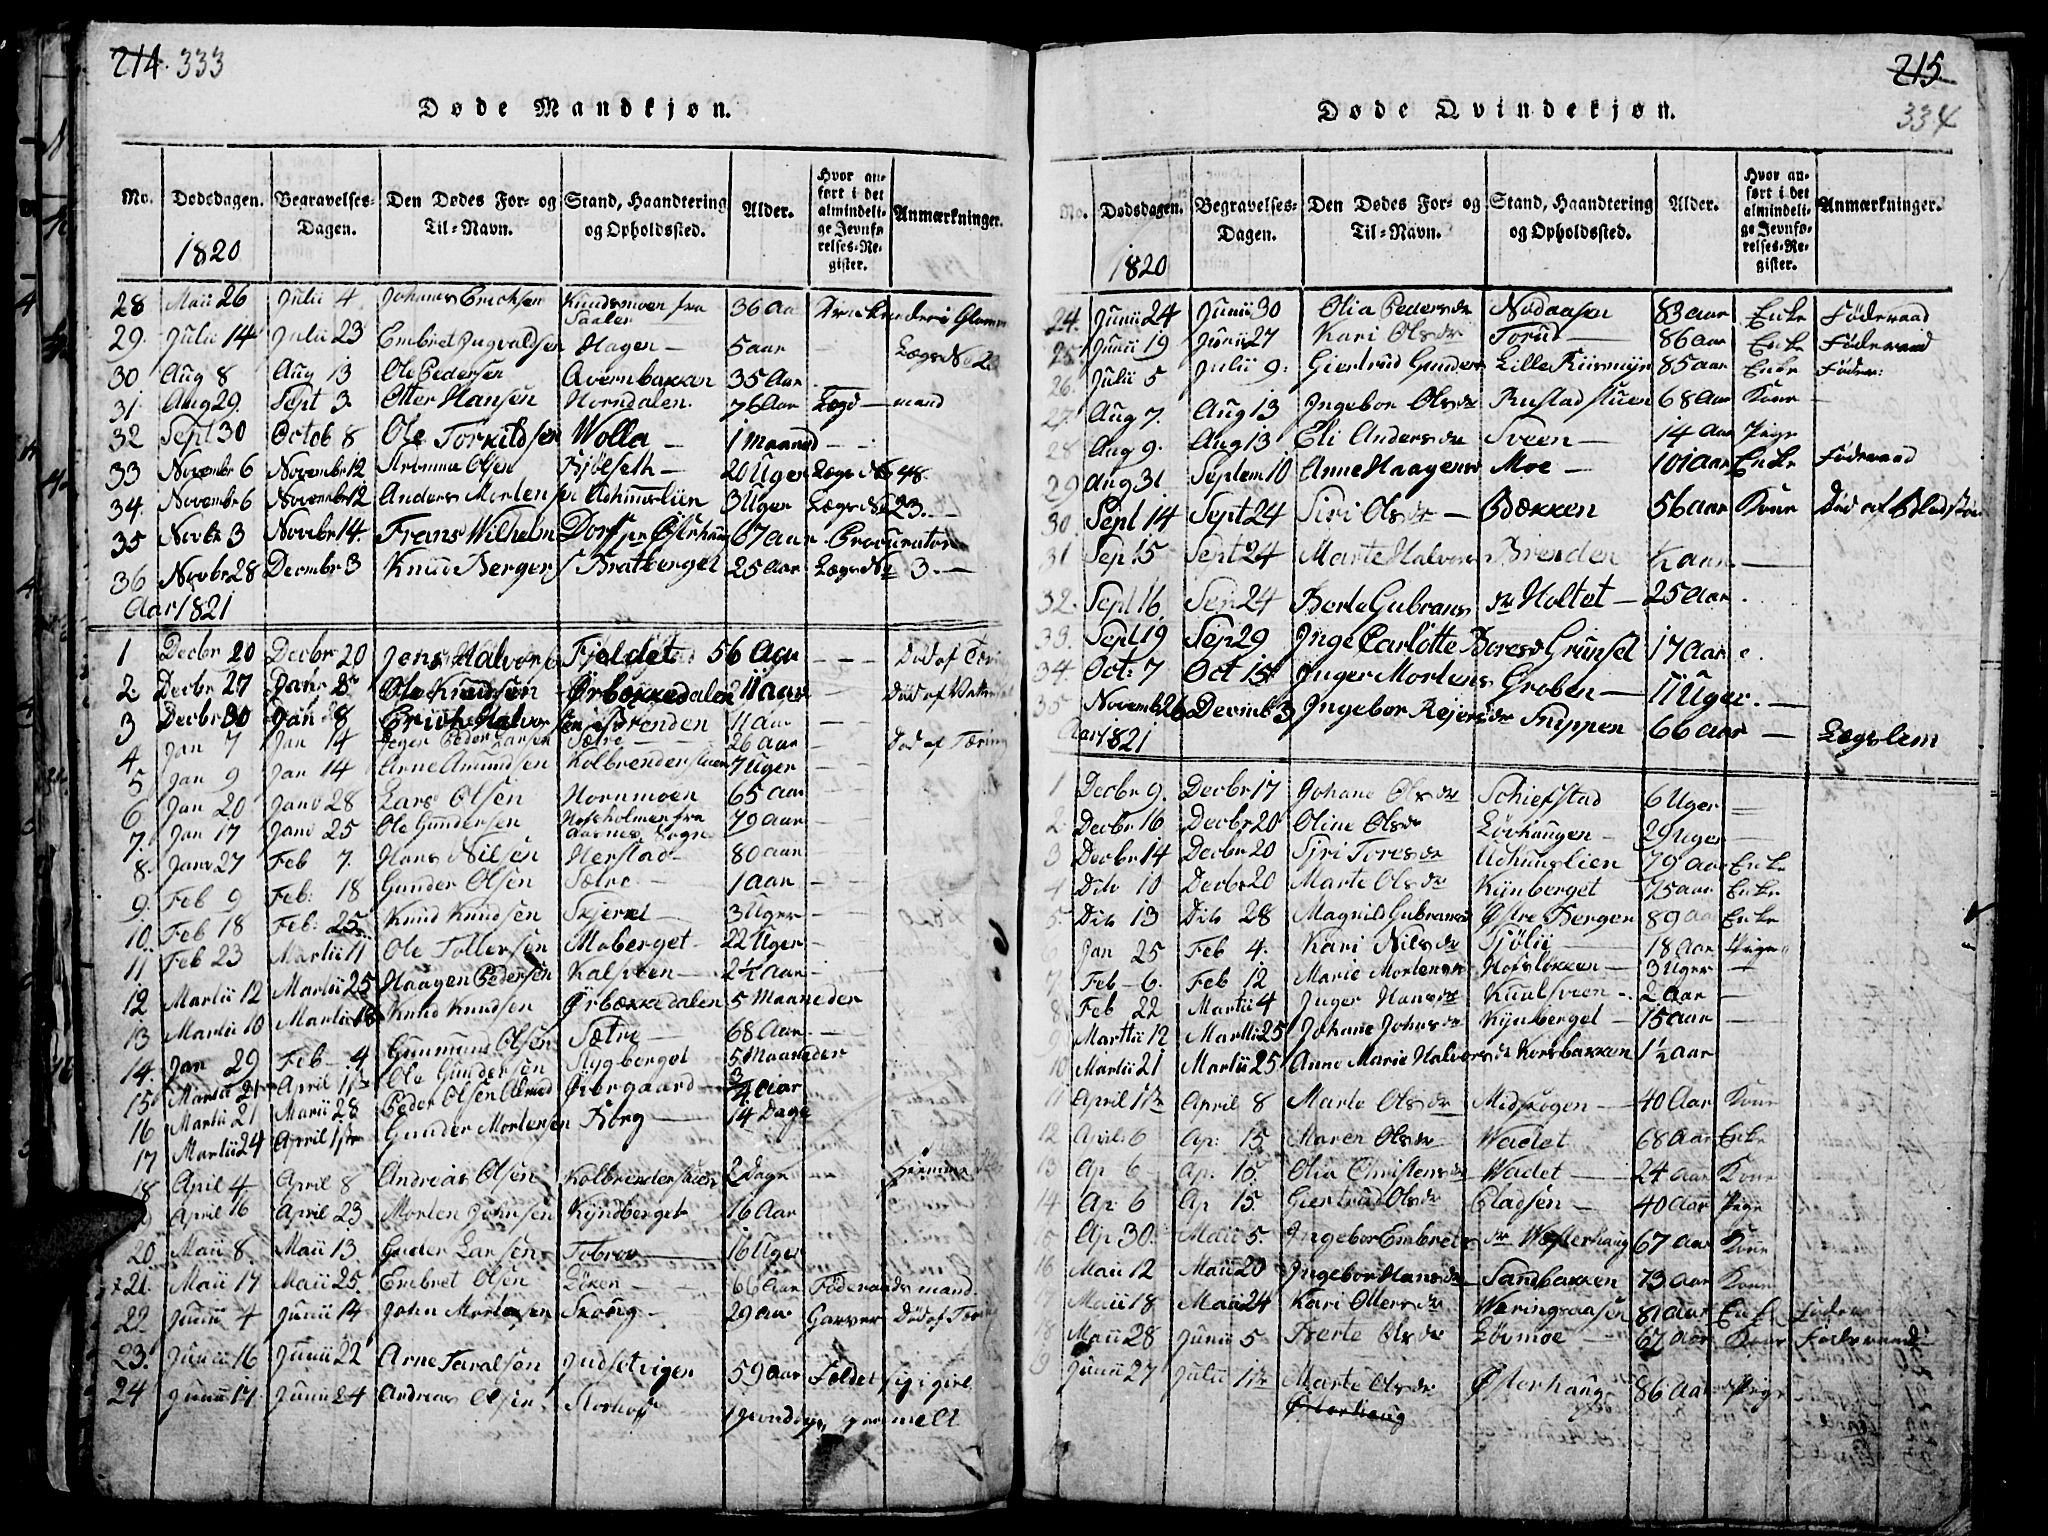 214 333
Døde Mandkjøn.
No. Dødsdagen. Begravelses-Dagen. Den Dødes For- og Til-Navn. Stand, Haandtering og Opholdssted. Alder. Hvor anført i det almindelige Jevnførelses-Register. Anmærkninger.
1820
28 Maii 26 Julii 4 Johannes Erichsen Knudsmoen fra 36 Aar
29. Julii 14 Julii 23 Embret Ingvaldsen Hagen 5 aar
30 Aug 8 Aug 13 Ole Pedersen 35 Aar
31. Aug 29. Sept 3 Otter Hansen Horndalen. 76 Aar Lægd mand
32 Sept 30 Octob 8 Ole Torkildsen Wolla 1 maaned
33 Novembr 6 Novembr 12 Olsen Kjölseth 20 Uger Lægs No 48.
34. Novembr 6 Novembr 12 Anders Mortensen 3 Uger Lægs No 23.
35 Novbr 3 Novbr 14. Frans Wilhelm Dorf 67 aar Procurator
36 Novbr 28 Decmbr 3 Knud Berger Bratberget 25 Aar Lægs No 3.
Aar 1821
1 Decbr 20 Decbr 20 Jens Halvorsen Fjeldet 56 Aar Död af Tæring
2. Decbr 27 Janr Ole Knudsen Ørbækkedalen Död af
3 Decbr 30 Jan 8 Erich Halvorsen Brenden 11 aar
4. Jan 7 Jan 14 Peder Larsen Sætre 26 aar Död af Tæring
5 Jan 9 Jan 14 Arne Amundsen Kolbrenderstuen 7 Uger
6 Jan 20 Janv 28 Lars Olsen Hornmoen 65 aar
7. Jan 17 Janv 25 Ole Gundersen Hofsholmen fra Aasnes Sogn 79 aar
8. Janv 27 Feb 7. Hans Nilsen Herstad 80 aar
9. Feb 9 Feb: 18 Gunder Olsen Sætre 1 aar
10. Feb 18 Feb: 25. Knud Knudsen Skjerret 3 Uger
11. Feb 23 Martii 11 Ole Tollersen Moberget 22 Uger
12 Martii 12 Martii 25 Haagen Pedersen Kalveen 2½ aar
13 Martii 10 Martii 18 Knud Knudsen Ørbækkedalen 5 Maaneder
14. Jan 29 Feb 4 Olsen Sætre 68 Aar
15 Martii April Ole Gundersen Stygberget 5 Maaneder
16 Martii 21 Martii 28 Peder Olsen Övergaard ¾ aar
17 Martii 24 April Gunder Mortensen Berg 14 Dage
18 April 4 April 8 Andreas Olsen Kolbrenderstuen 2 Dage
April 16 April 23 Morten Johnsen Kyndberget 16 Aar
20 Maii 8. Maii 13 Larsen Tobroe 16 Uger
21. Maii 17 Maii 25. Embret Olsen Löken 66 Aar Föderaadsmand
22 Junii 4 Junii 14 John Mortensen Skoug 29 aar Garver Död af Tæring
23. Junii 16 Junii 22 Arne Taralsen Indsetvigen 59 aar
24 Junii 17 Junii 24 Andreas Olsen

215
334
Døde Qvindekjøn.
No. Dødsdagen. Begravelses-Dagen. Den Dødes For- og Til-Navn. Stand, Haandtering og Opholdssted. Alder. Hvor anført i det almindelige Jevnførelses-Register. Anmærkninger.
1820
24. Junii 24 Junii 30 Olia Pedersdr Nodaasen 83 aar Enke Föderaad
25 Junii 19 Junii 27 Kari Olsdr Torud 86 aar Enke Föderaad
26. Julii 5 Julii 9. Giertrud Gunders Lille 85 aar Enke Föder:
27. Aug 7. Aug 13 Ingebor Olsdr Rustadstuen 68 Aar Kone
28 Aug 9. Aug 13 Eli Andersdr Sveen 14 Aar Pige
29 Aug 31 Septem 10 Anne Haagens Moe 101 aar Enke Föderaad
30. Sept 14 Sept 24 Siri Olsdr Bækken 56 aar Kone Död af
31 Sep 15 Sept 24 Marte Halvors Brenden
32. Sept 16. Sep 24 Berte Gubrans dr Holtet 25 Aar
33. Sept 19 Sep 29 Inge Carlotte Boresdr Grunset 17 aar
34. Oct: 7 Oct 15 Inger Mortens Groben 11 Uger
35 Novemb 26 Decmb 3 Ingebor Rejersdr Snippen 66 aar Lægslem
Aar 1821
1 Decbr 9. Decbr 17 Johane Olsdr Schiefstad 6 Uger
2 Decbr 16 Decbr 20 Oline Olsdr Lövhaugen 29 uger
3 Decbr 14 Decbr 20 Siri Toresdr 79 aar Enke
4 Dito 10 Decbr 20 Marte Olsdr Kynberget 75 aar Enke
5. Dito 13 Dito 28 Magnild Gubrans Østre Berger 89 aar Enke
6 Jan 25 Feb 4. Kari Nilsdr Sjölii 18 Aar Pige
7. Feb 6. Feb 12 Marie Mortensdr Hofsløkken 3 Uger
8. Feb 22 Martii 4 Inger Hansdr Knulsveen 2 aar
9 Martii 12 Martii 25 Johane Johnsdr Kynberget 15 aar
10 Martii 21 Martii 25 Anne Marie Halvorsdr Korsbakken 1½ aar
11 April April 8 Marte Olsdr Midskogen 40 Aar Kone
12 April 6 Ap: 15 Maren Olsdr Wadet 68 aar Enke
13 Ap 6 Ap. 15. Olia Christensdr Wadet 24 aar Kone
14 Ap 6 Ap 15. Giertrud Olsdr 40 Aar Pige
15 Ap 30. Maii 5. Ingebor Embrets dr Westerhaug 67 aar Kone
16 Maii 12 Maii 20 Ingebor Hansdr Sandbakken 73 aar Kone
Maii 18 Maii 24 Kari Ottersdr Wæringsaasen 81 aar Enke Föderaad
18 Maii 28 Junii 5 Berte Olsdr Lövmoe 67 aar Kone Föderaad
9 Junii 27 Julii Marte Olsdr Østerhaug 86 Aar Pige
Østerhaug